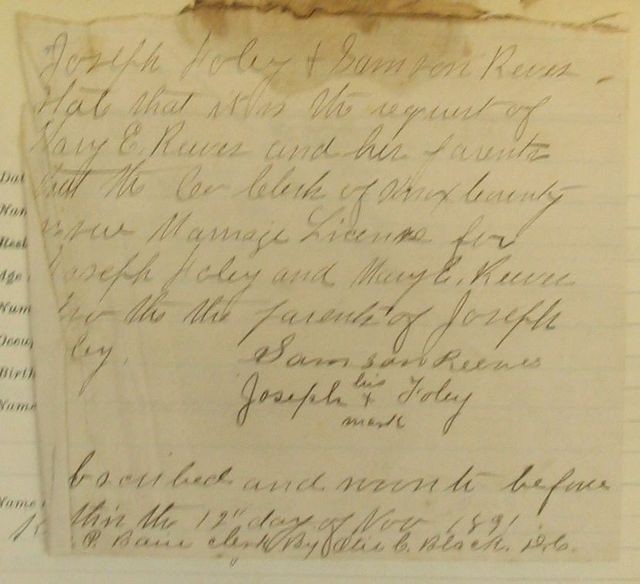 Joseph Foley & Samson Reeves
State that it is the request of
Mary E. Reeves and her parents
that the Co Clerk of Knox County
issue Marriage License for
Joseph Foley and Mary E. Reeves
the the parents of Joseph
ley.
Samson Reeves
Joseph his + Foley
mark
bscribed and sworn to before
this the 12" day of Nov 1891
clerk By C. Black D.C.
Dat
Nam
Resi
Age
Num
Occup
Birth
Name
Name